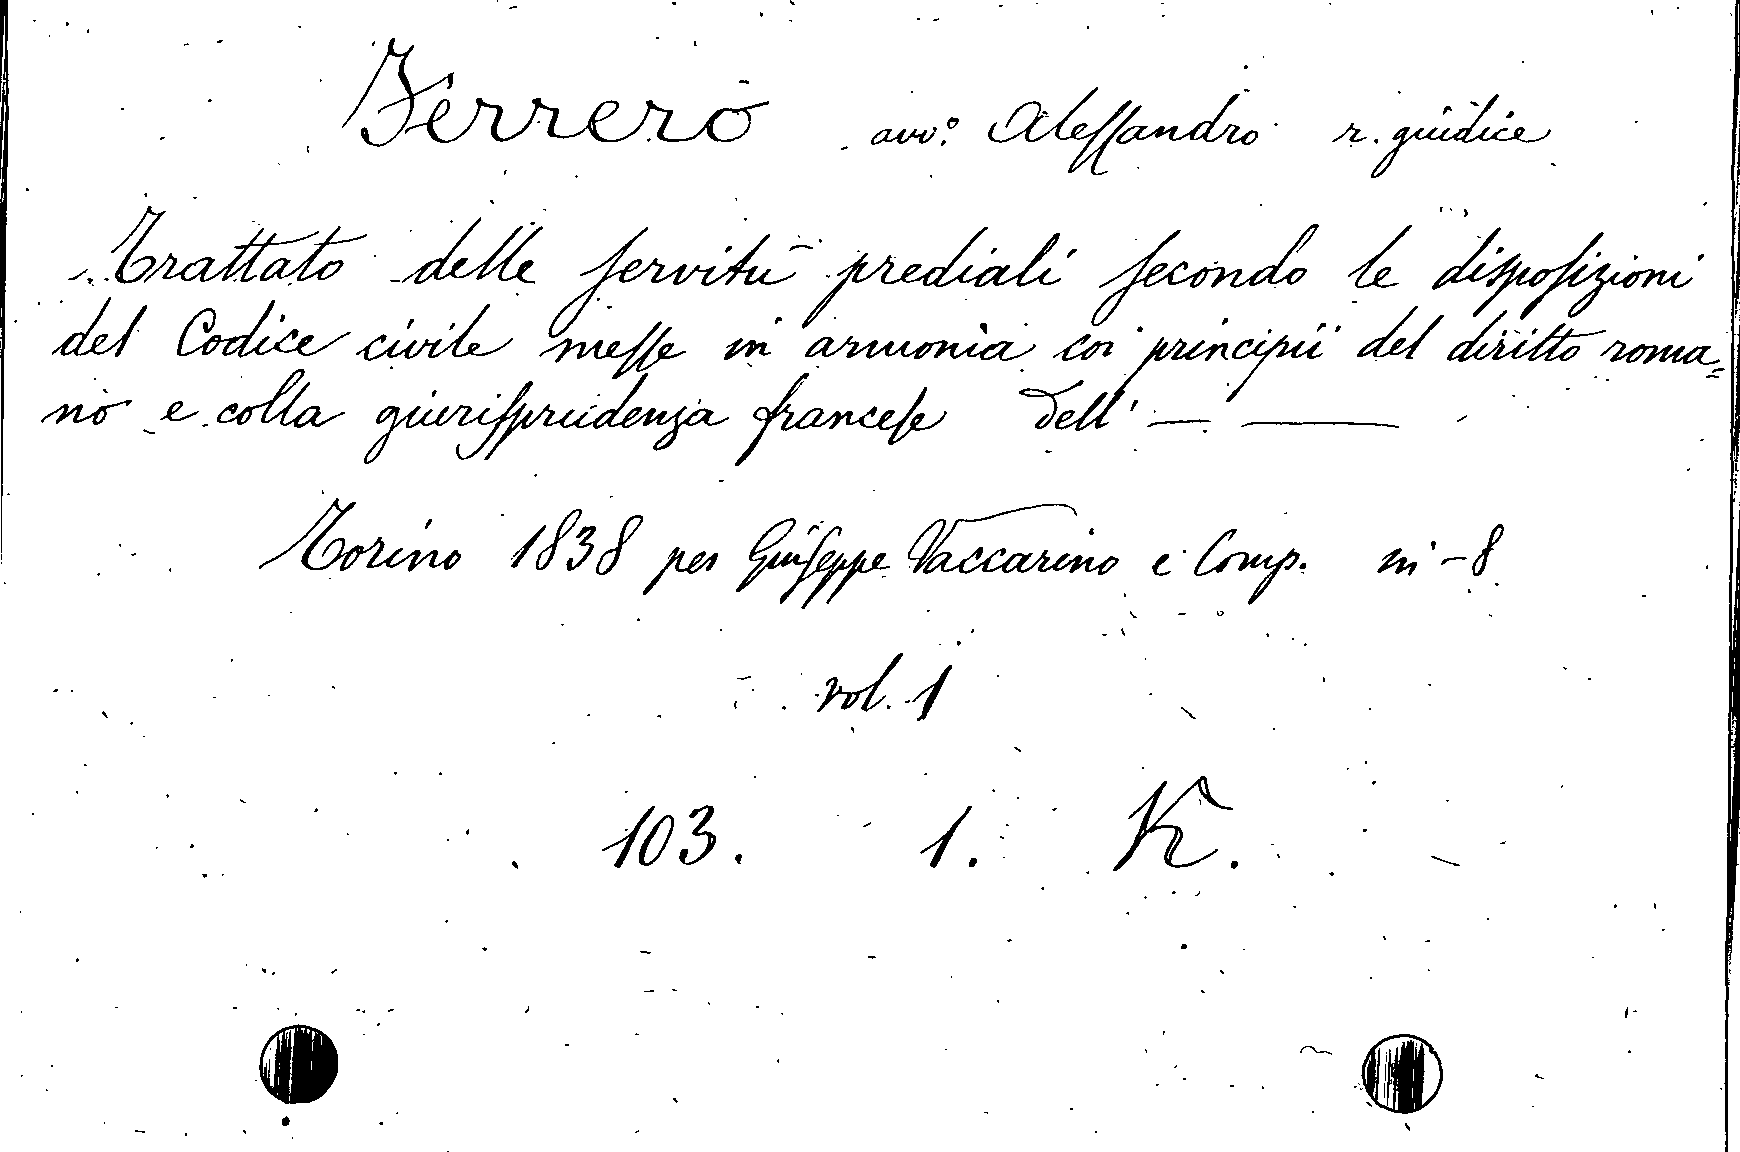 Ferrero avv.º Alessandro r. giudice
Trattato delle servitù prediali secondo le disposizioni
del Codice civile messe in armonia coi principii del diritto roma=
no e colla giurisprudenza francese Dell' — ——
Torino 1838 per Giuseppe Vaccarino e Comp. in-8
vol. 1
103. 1. K.